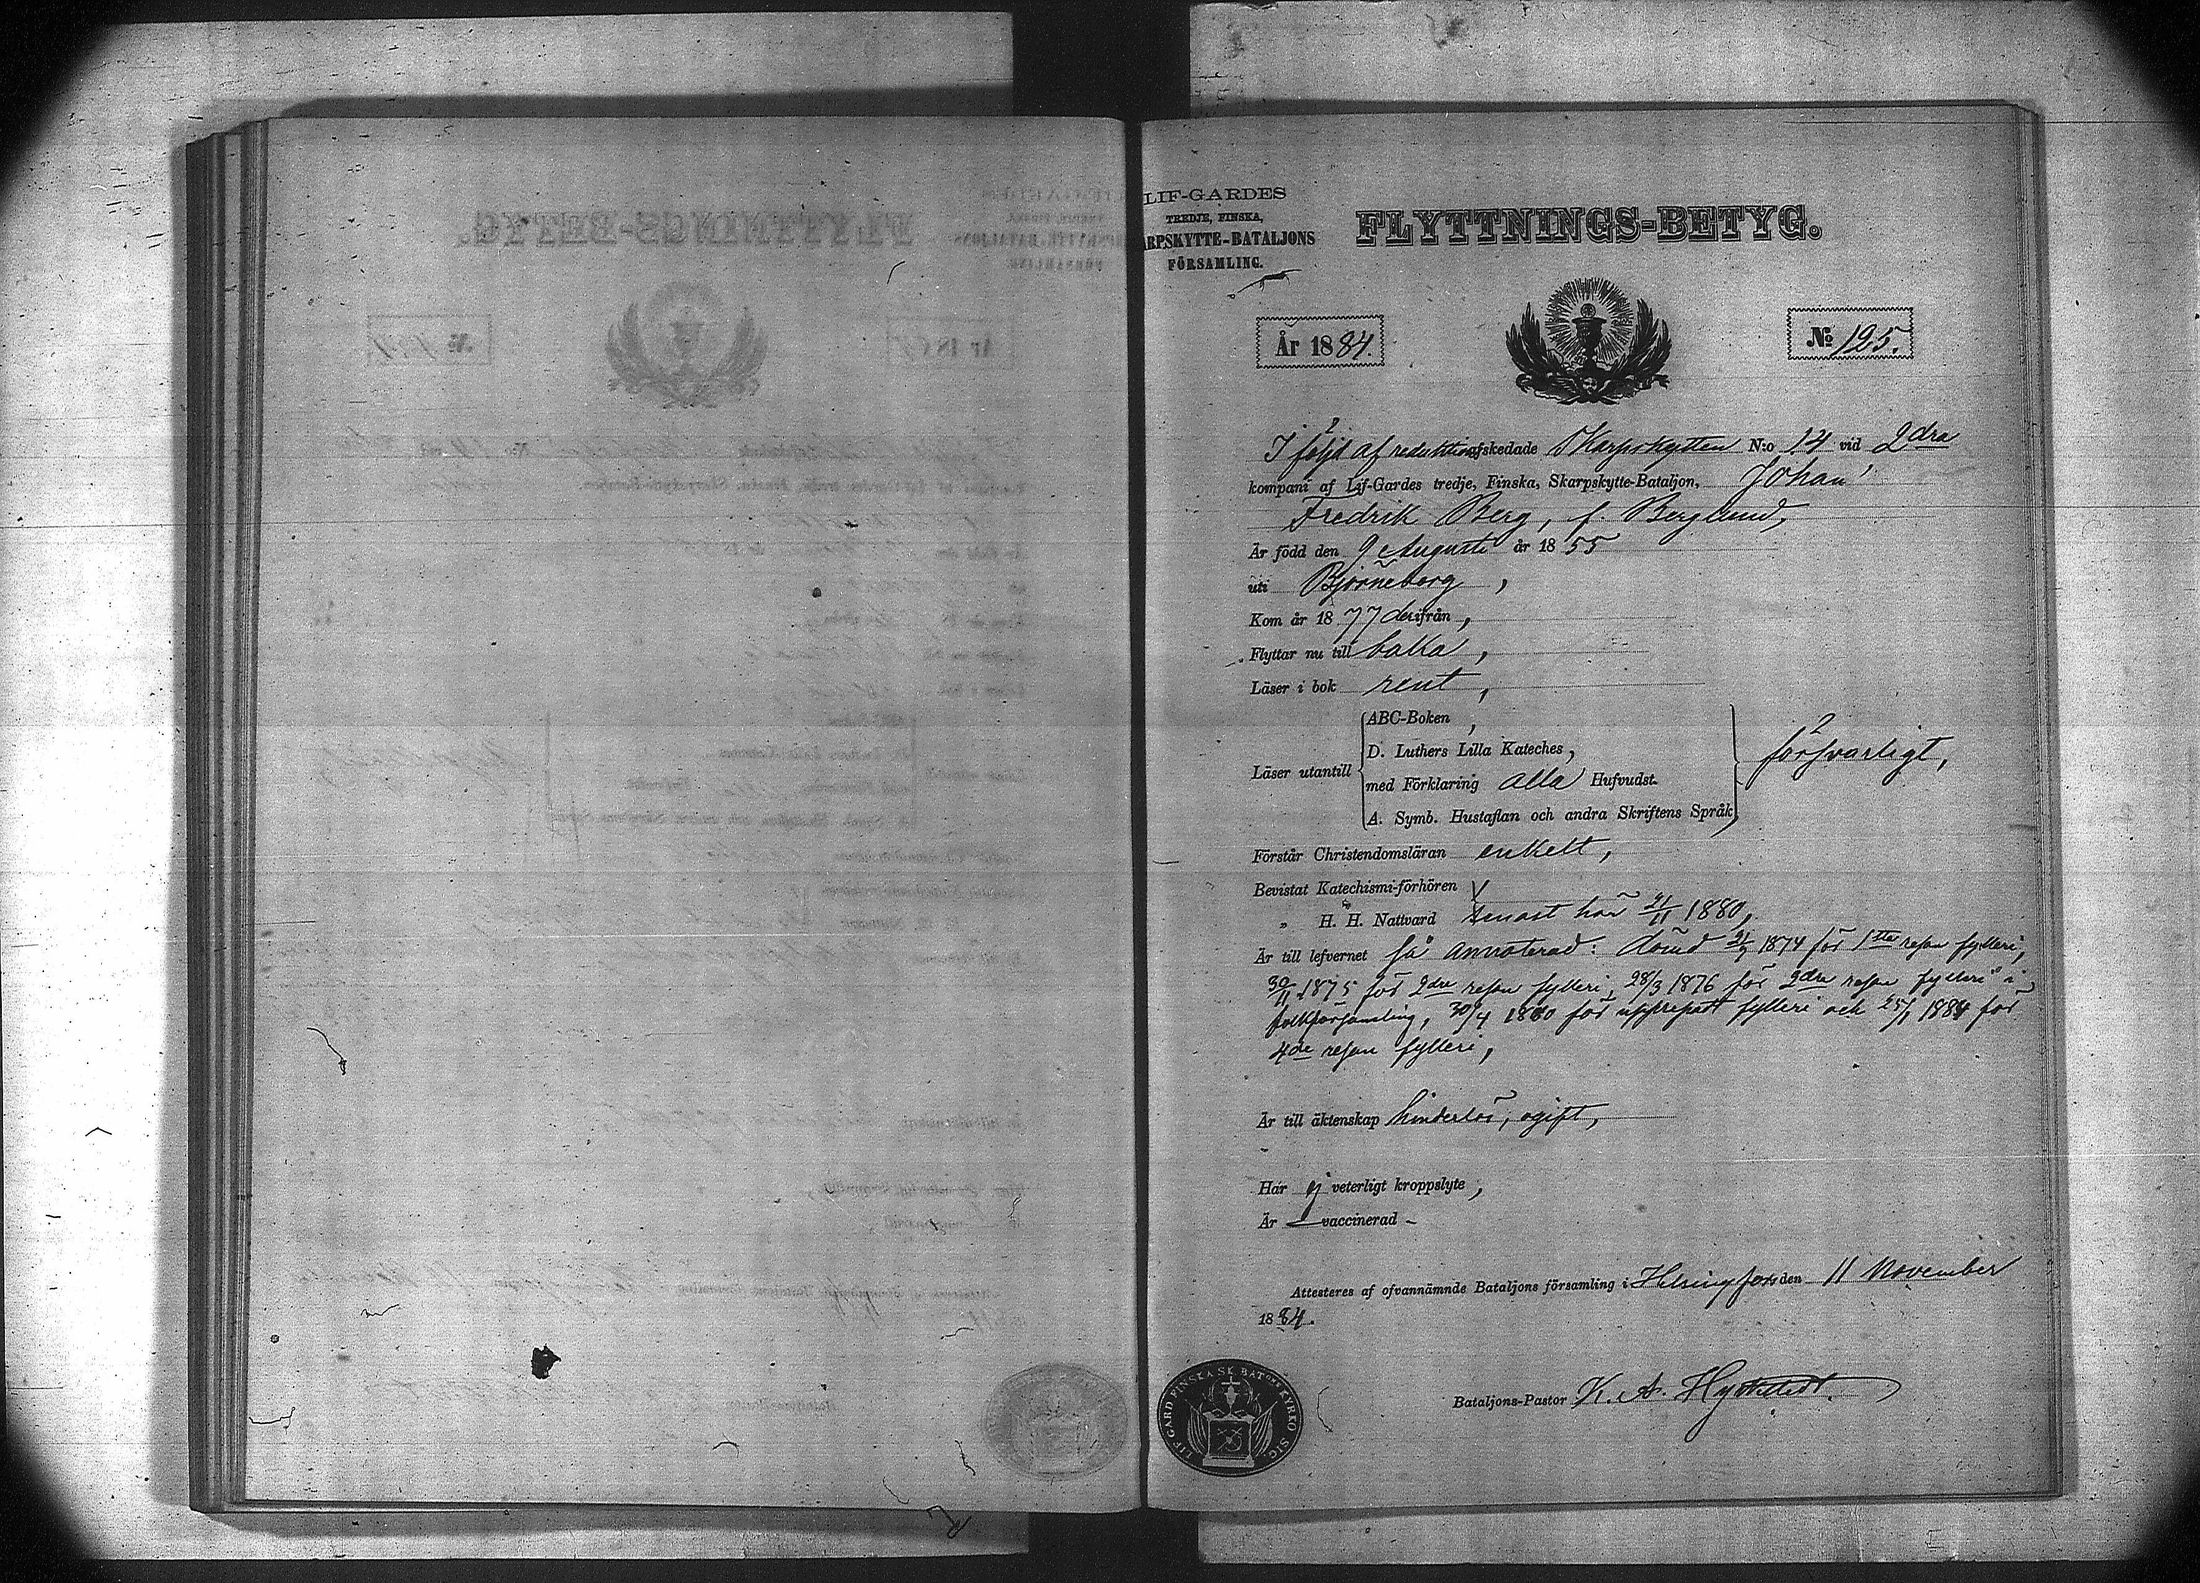 LIF-GARDES
TREDJE, FINSKA,
ARPSKYTTE-BATALJONS
FÖRSAMLING.
FLYTTNINGS-BETYG.
År 1884.
No 125.
I följd af reduktion afskedade Skarpskytten N:o 14 vid 2dra
kompani af Lif-Gardes tredje, Finska, Skarpskytte-Bataljon, Johan
Fredrik Berg, f. Berglund,
Är född den 9 Augusti år 1855
uti Björneborg,
Kom år 1877 derifrån,
Flyttar nu till baka,
Läser i bok rent,
Läser utantill
ABC-Boken,
D. Luthers Lilla Kateches,
med Förklaring alla Hufvudst.
A. Symb. Hustaflan och andra Skriftens Språk
försvarligt,
Förstår Christendomsläran enkelt,
Bevistat Katechismi-förhören
„ H. H. Nattvard senast här 21/11 1880,
Är till lefvernet så annoterad: dömd 21/9 1874 för 1sta resan fylleri,
30/11 1875 för 2dra resan fylleri, 28/3 1876 för 2dra resan fylleri i
folkförsamling, 30/4 1880 för upprepadt fylleri och 25/1 1884 för
4de resan fylleri,
Är till äktenskap hinderlös, ogift,
Har ej veterligt kroppslyte,
Är — vaccinerad –
Attesteras af ofvannämnde Bataljons församling i Helsingfors den 11 November
1884.
Bataljons-Pastor K. A.
LIF GARD FINSKA SK BATONS KYRKO SIG.